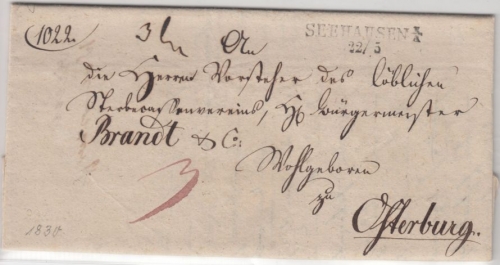 1022.
SEEHAUSEN
22/5
An
die Herren Vorsteher des löblichen
Sterbecassenvereins, H bürgermeister
Brandt & C:
Wohlgeboren
zu
Osterburg.
3
1830